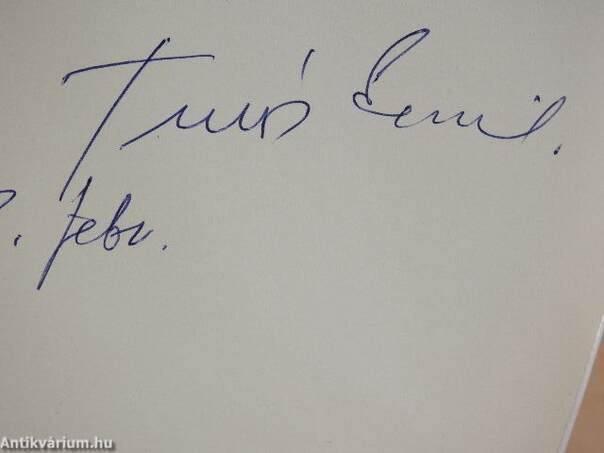 Turós Emil.
. febr.
Antikvárium.hu